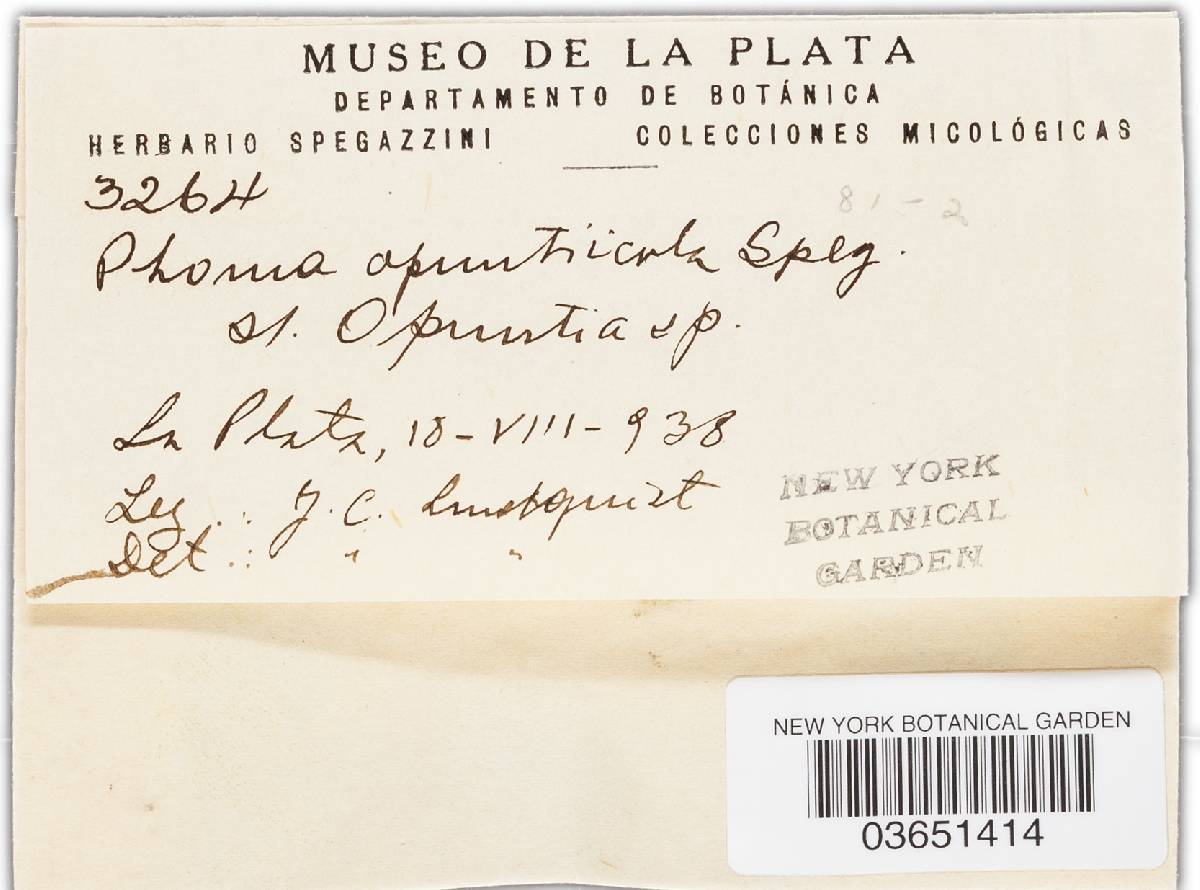 MUSEO DE LA PLATA
DEPARTAMENTO DE BOTÁNICA
HERBARIO SPEGAZZINI COLECCIONES MICOLÓGICAS
3264
81-2
Phoma opuntiicola Speg.
st. Opuntia sp.
La Plata, 18-VIII-938
Leg.: J. C. Lindquist
Det.: " "
NEW YORK
BOTANICAL
GARDEN
NEW YORK BOTANICAL GARDEN
03651414